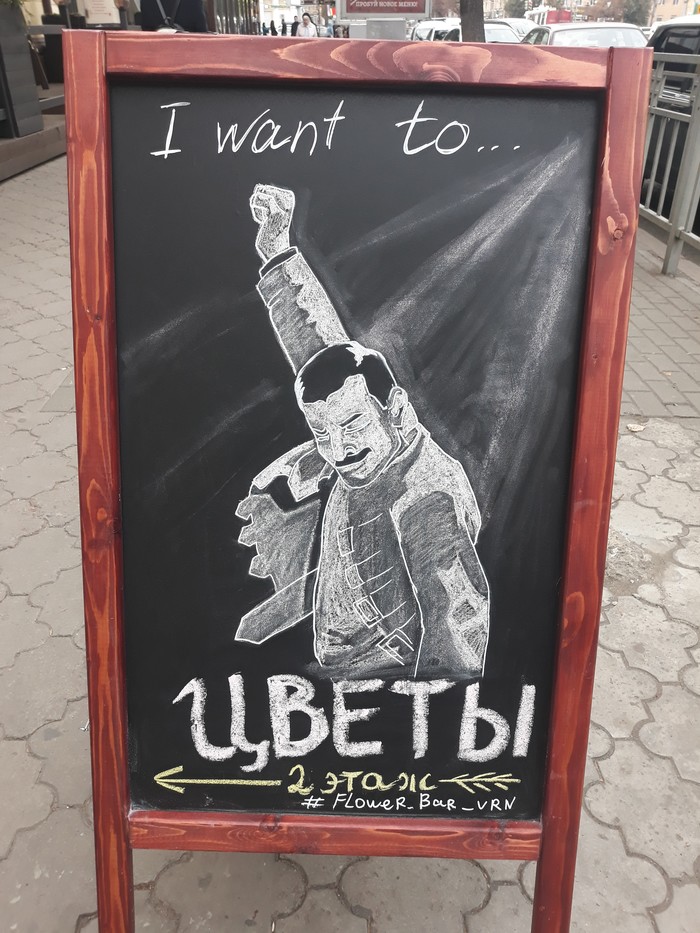 ПРОБУЙ НОВОЕ МЕНЮ!
I want to...
ЦВЕТЫ
2 этаж
# FLOWER_BAR_VRN